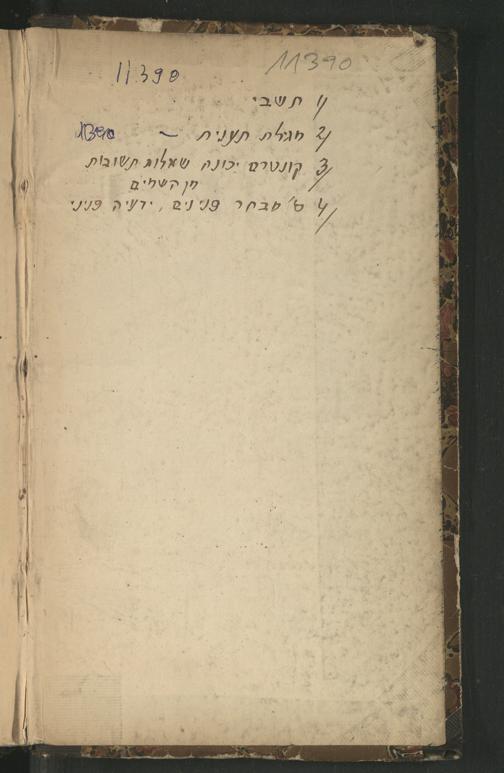 11390 11390
1/ תשבי
2/ מגילת תענית – 1390
3/ קונטרס יכונה שאלות תשובות
מן השמים
4/ ס' מבחר פנינים, ידעיה פניני